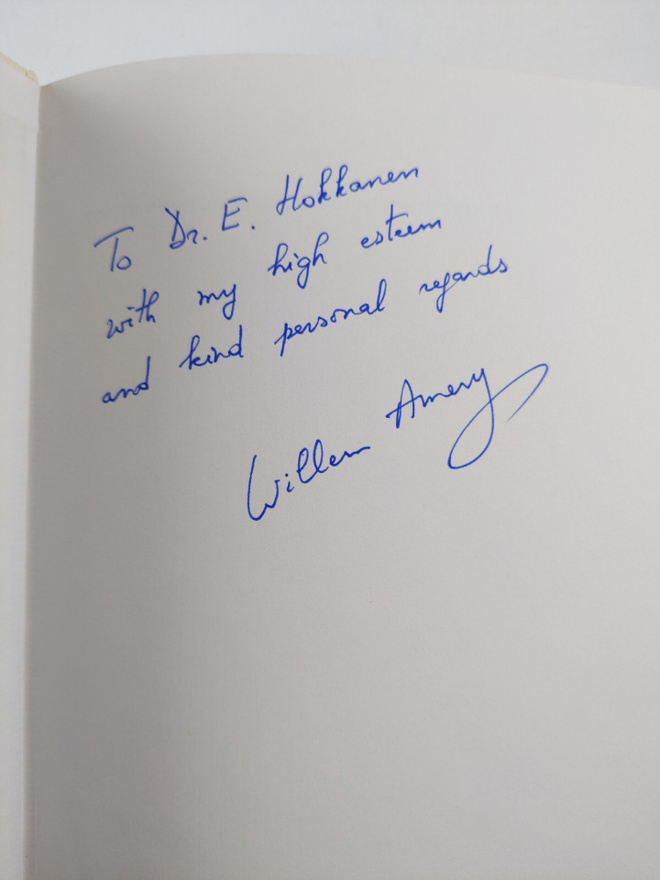 To Dr. E. Hokkanen
with my high esteem
and kind personal regards
Willem Amery